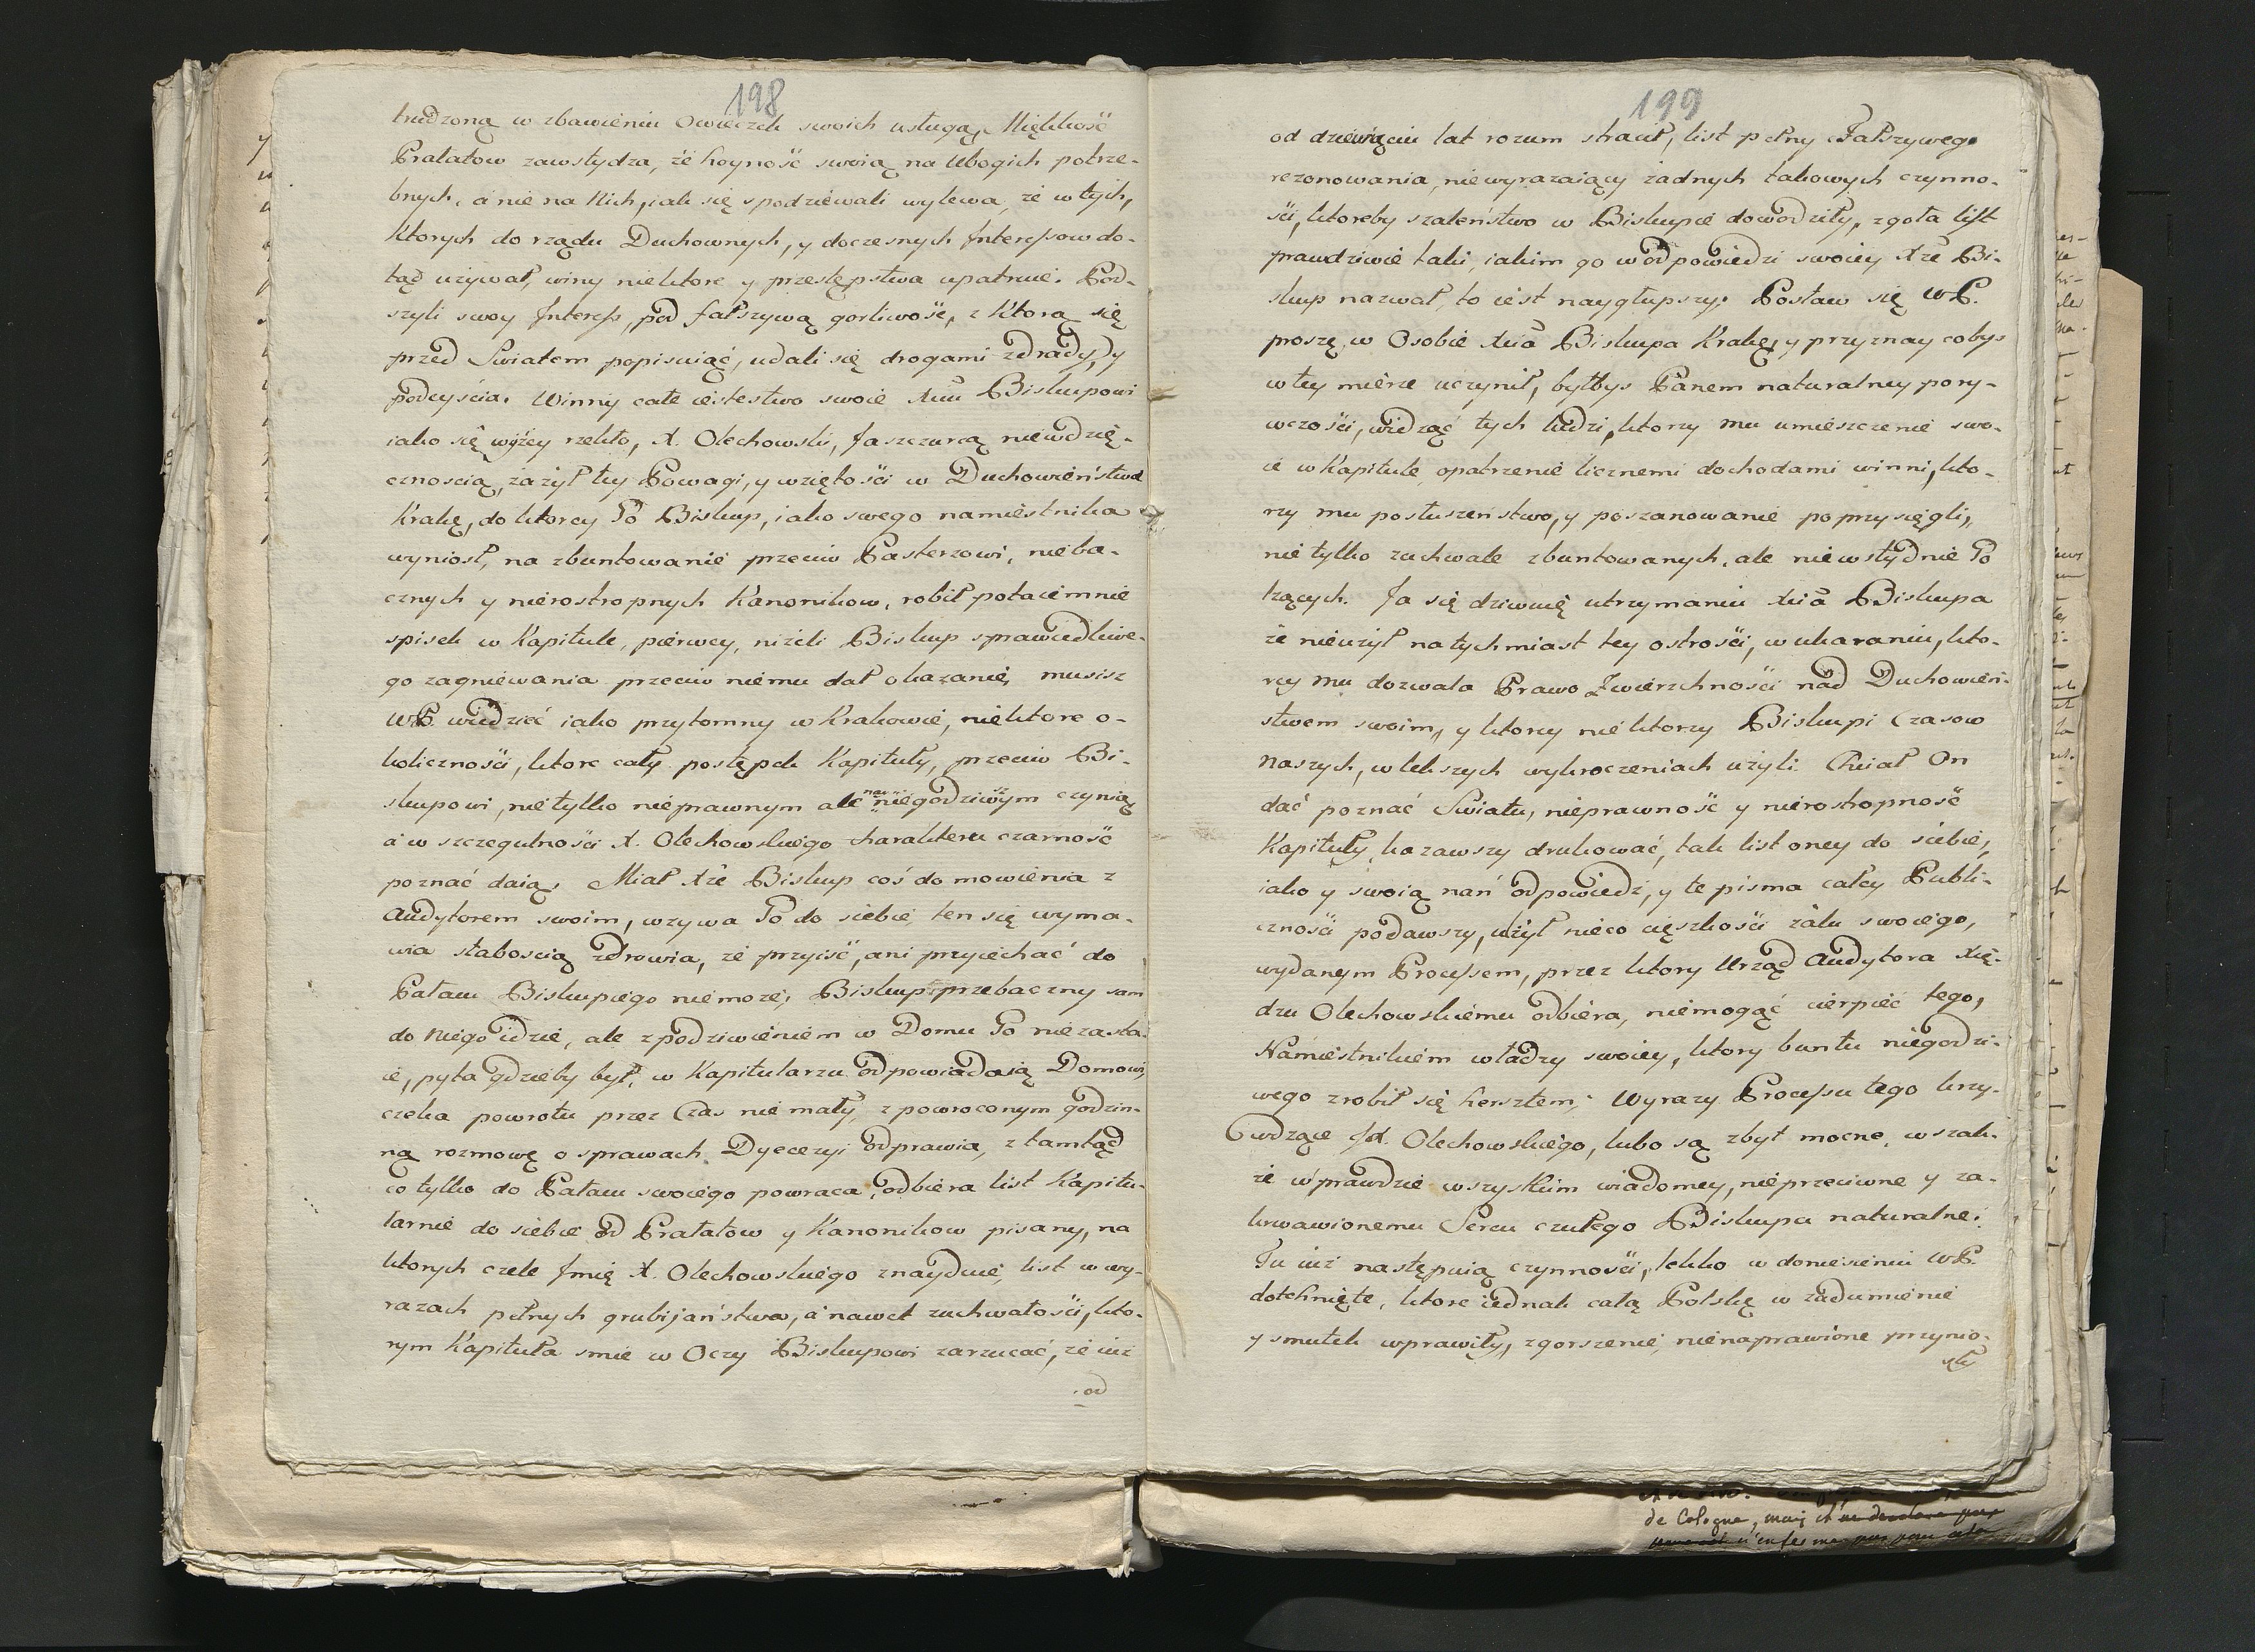 198
trudzoną w zbawieniu Owieczek swoich usługą, Miękkość
Prałatow zawstydza, że hoyność swoią na Ubogich potrze-
bnych, á nie na Nich, iak się spodziewali wylewa, że w tych,
Ktorych do rządu Duchownych, y doczesnych Interessow do-
tąd używał, winy niektore y przestępstwa upatruie. Pod-
szyli swoy Interess, pod fałszywą gorliwość, z ktorą się
przed Swiatem popisuiąć, udali się drogami zdrady, y
podeyścia. Winny całe iestestwo swoie Xciu Biskupowi
iako się wyżey rzekło, X. Olechowski, Jaszczurcą niewdzię-
cznoscią, zażył tey Powagi, y wziętości w Duchowieństwie
Krakḡ, do ktorey Go Biskup, iako swego namiestnika
wyniosł, na zbuntowanie przeciw Pasterzowi, nieba-
cznych y nierostropnych Kanonikow, robił potaiemnie
spisek w Kapitule, pierwey, niżeli Biskup sprawiedliwe-
go zagniewania przeciw niemu dał okazanie, musisz
WP. wiedzieć iako przytomny w Krakowie, niektore o-
koliczności, ktore cały postępek Kapituły, przeciw Bi-
skupowi, nie tylko nieprawnym ale nay niegodziwszym czynią
á w szczegulności X. Olechowskiego charakteru czarność
poznać daią. Miał Xże Biskup coś do mowienia z
Audytorem swoim, wzywa Go do siebie, ten się wyma-
wia słaboscią zdrowia, że przyiść, ani przyiechać do
Pałacu Biskupiego niemoże, Biskup przebaczny sam
do Niego idzie, ale z podziwieniem w Domu Go niezasta-
ie, pyta gdzieby był, w Kapitularzu odpowiadaią Domowi,
czeka powrotu przez Czas nie mały, z powroconym godzin-
ną rozmowę o sprawach Dyecezyi odprawia, z tamtąd
co tylko do Pałacu swoiego powraca, odbiera list Kapitu-
larnie do siebie od Prałatow y Kanonikow pisany, na
ktorych czele Imię X. Olechowskiego znayduie, list w wy-
razach pełnych grubijaństwa, á nawet zuchwałości, kto-
rym Kapituła smie w Oczy Biskupowi zarzucać, że iuż
od
199
od dziewięciu lat rozum stracił, list pełny Fałszywego
rezonowania, niewyrażaiący żadnych takowych czynno-
ści, ktoreby szaleństwo w Biskupie dowodziły, zgoła list
prawdziwie taki, iakim go w odpowiedzi swoiey Xże Bi-
skup nazwał, to iest naygłupszy. Postaw się WP.
proszę, w Osobie Xcia Biskupa Krakḡ, y przyznay cobys
w tey mierze uczynił, byłbys Panem naturalney pory-
wczości, widząć tych ludzi, ktorzy mu umieszczenie swo-
ie w Kapitule, opatrzenie licznemi dochodami winni, kto-
rzy mu posłuszeństwo, y poszanowanie poprzysięgli,
nie tylko zuchwale zbuntowanych, ale niewstydnie Go
łżących. Ja się dziwuię utrzymaniu Xcia Biskupa
że nieużył natychmiast tey ostrości, w ukaraniu, kto-
rey mu dozwala Prawo Zwierzchności nad Duchowień-
stwem swoim, y ktorey niektorzy Biskupi Czasow
naszych, w lekszych wykroczeniach użyli. Chciał On
dać poznać Swiatu, nieprawność y nierostropność
Kapituły, kazawszy drukować, tak list oney do siebie,
iako y swoią nań odpowiedź, y te pisma całey Publi-
czności podawszy, użył nieco cięszkości żalu swoiego,
wydanym Processem, przez ktory Urząd Audytora Xię-
dzu Olechowskiemu odbiera, niemogąć cierpieć tego,
Namiestnikiem władzy swoiey, ktory buntu niegodzi-
wego zrobił się hersztem; Wyrazy Processu tego krzy-
wdzące JX. Olechowskiego, lubo są zbyt mocne, w szak-
że w prawdzie wszystkim wiadomey, nieprzeciwne y za-
krwawionemu Sercu czułego Biskupa naturalne.
Tu iuż następuią czynności, lekko w doniesieniu WP.
dotchnięte, ktore iednak całą Polskę w zadumienie
y smutek wprawiły, zgorszenie, nienaprawione przynio-
sły
de Cologne, mais